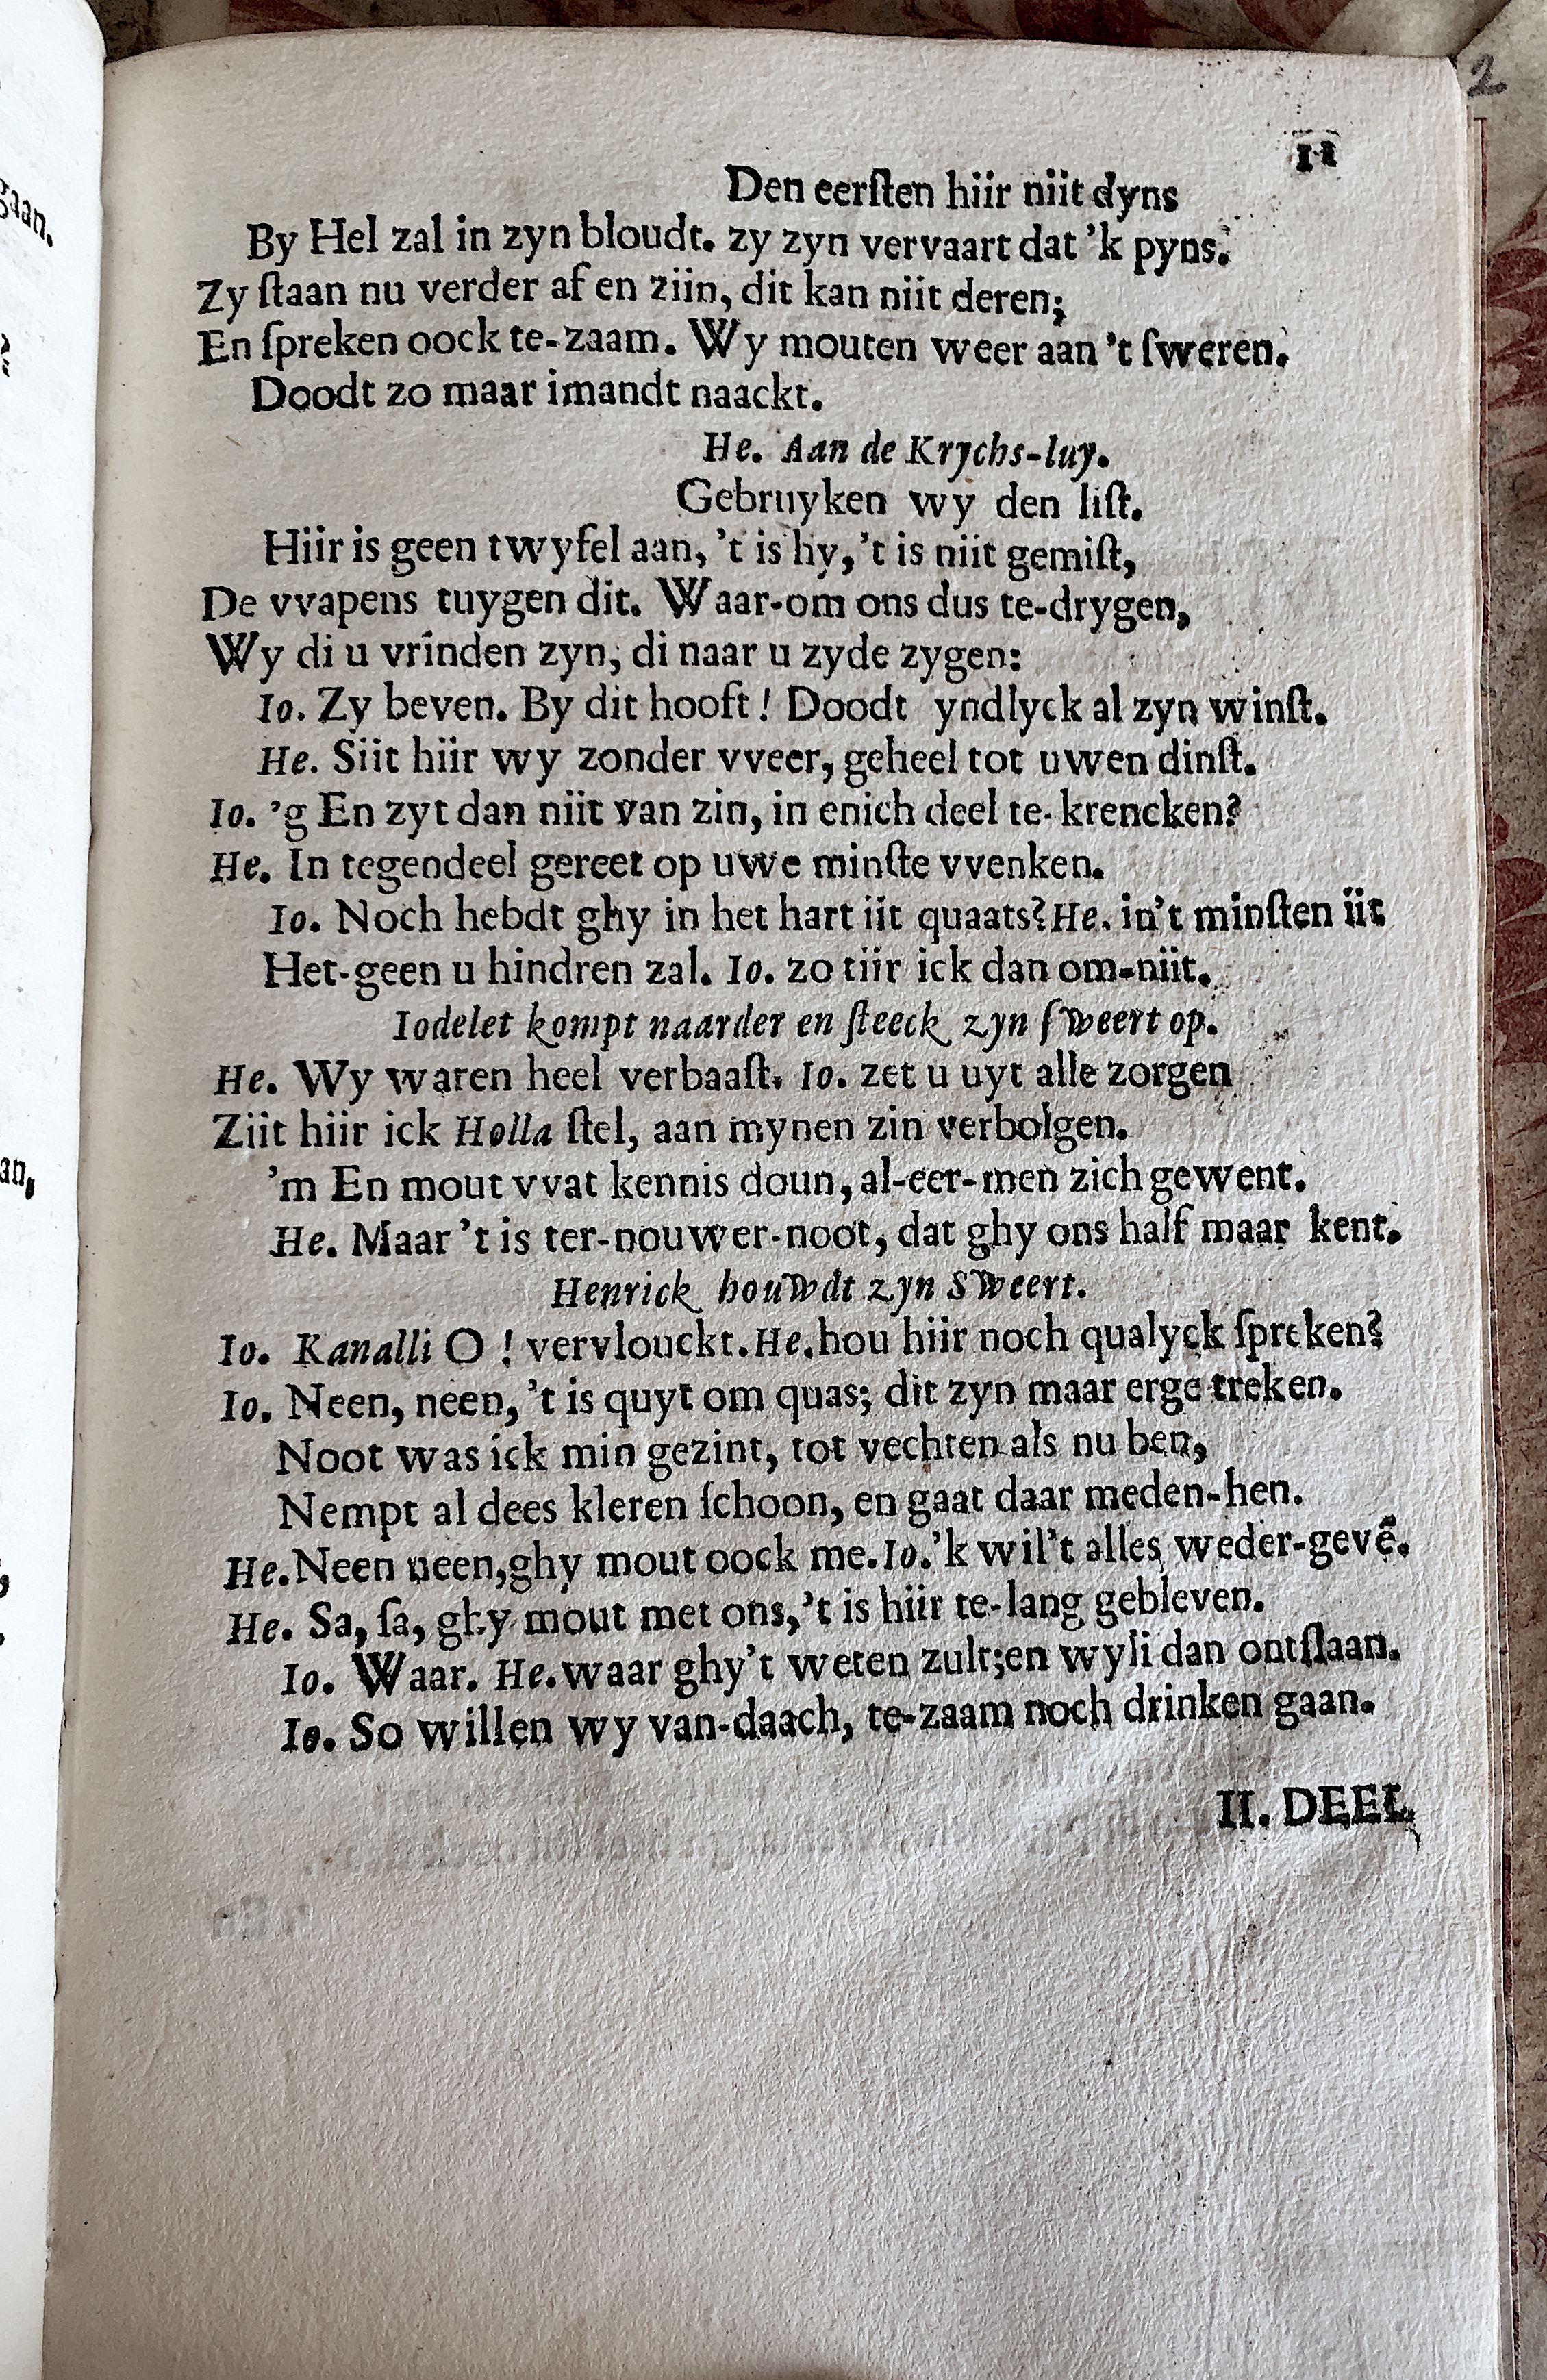 2
11
Den eerſten hiir niit dyns
By Hel zal in zyn bloudt. zy zyn vervaart dat 'k pyns.
Zy ſtaan nu verder af en ziin, dit kan niit deren;
En ſpreken oock te-zaam. Wy mouten weer aan 't ſweren.
Doodt zo maar imandt naackt.
He. Aan de Krychs-luy.
Gebruyken wy den liſt.
Hiir is geen twyfel aan, 't is hy, 't is niit gemiſt,
De vvapens tuygen dit. Waar-om ons dus te-drygen,
Wy di u vrinden zyn, di naar u zyde zygen:
Io. Zy beven. By dit hooft! Doodt yndlyck al zyn winſt.
He. Siit hiir wy zonder vveer, geheel tot uwen dinſt.
Io. 'g En zyt dan niit van zin, in enich deel te-krencken?
He. In tegendeel gereet op uwe minſte vvenken.
Io. Noch hebdt ghy in het hart iit quaats? He. in't minſten iit
Het-geen u hindren zal. Io. zo tiir ick dan om-niit.
Iodelet kompt naarder en ſteeck zyn ſweert op.
He. Wy waren heel verbaaſt. Io. zet u uyt alle zorgen
Ziit hiir ick Holla ſtel, aan mynen zin verbolgen.
'm En mout vvat kennis doun, al-eer-men zich gewent.
He. Maar 't is ter-nouwer-noot, dat ghy ons half maar kent.
Henrick houwdt zyn Sweert.
Io. Kanalli O ! vervlouckt. He. hou hiir noch qualyck ſpreken?
Io. Neen, neen, 't is quyt om quas; dit zyn maar erge treken.
Noot was ick min gezint, tot vechten als nu ben,
Nempt al dees kleren ſchoon, en gaat daar meden-hen.
He. Neen neen, ghy mout oock me. Io. 'k wil't alles weder-gevẽ.
He. Sa, ſa, ghy mout met ons, 't is hiir te-lang gebleven.
Io. Waar. He. waar ghy't weten zult; en wyli dan ontſlaan.
Io. So willen wy van-daach, te-zaam noch drinken gaan.
II. DEEL
gaan.
an,